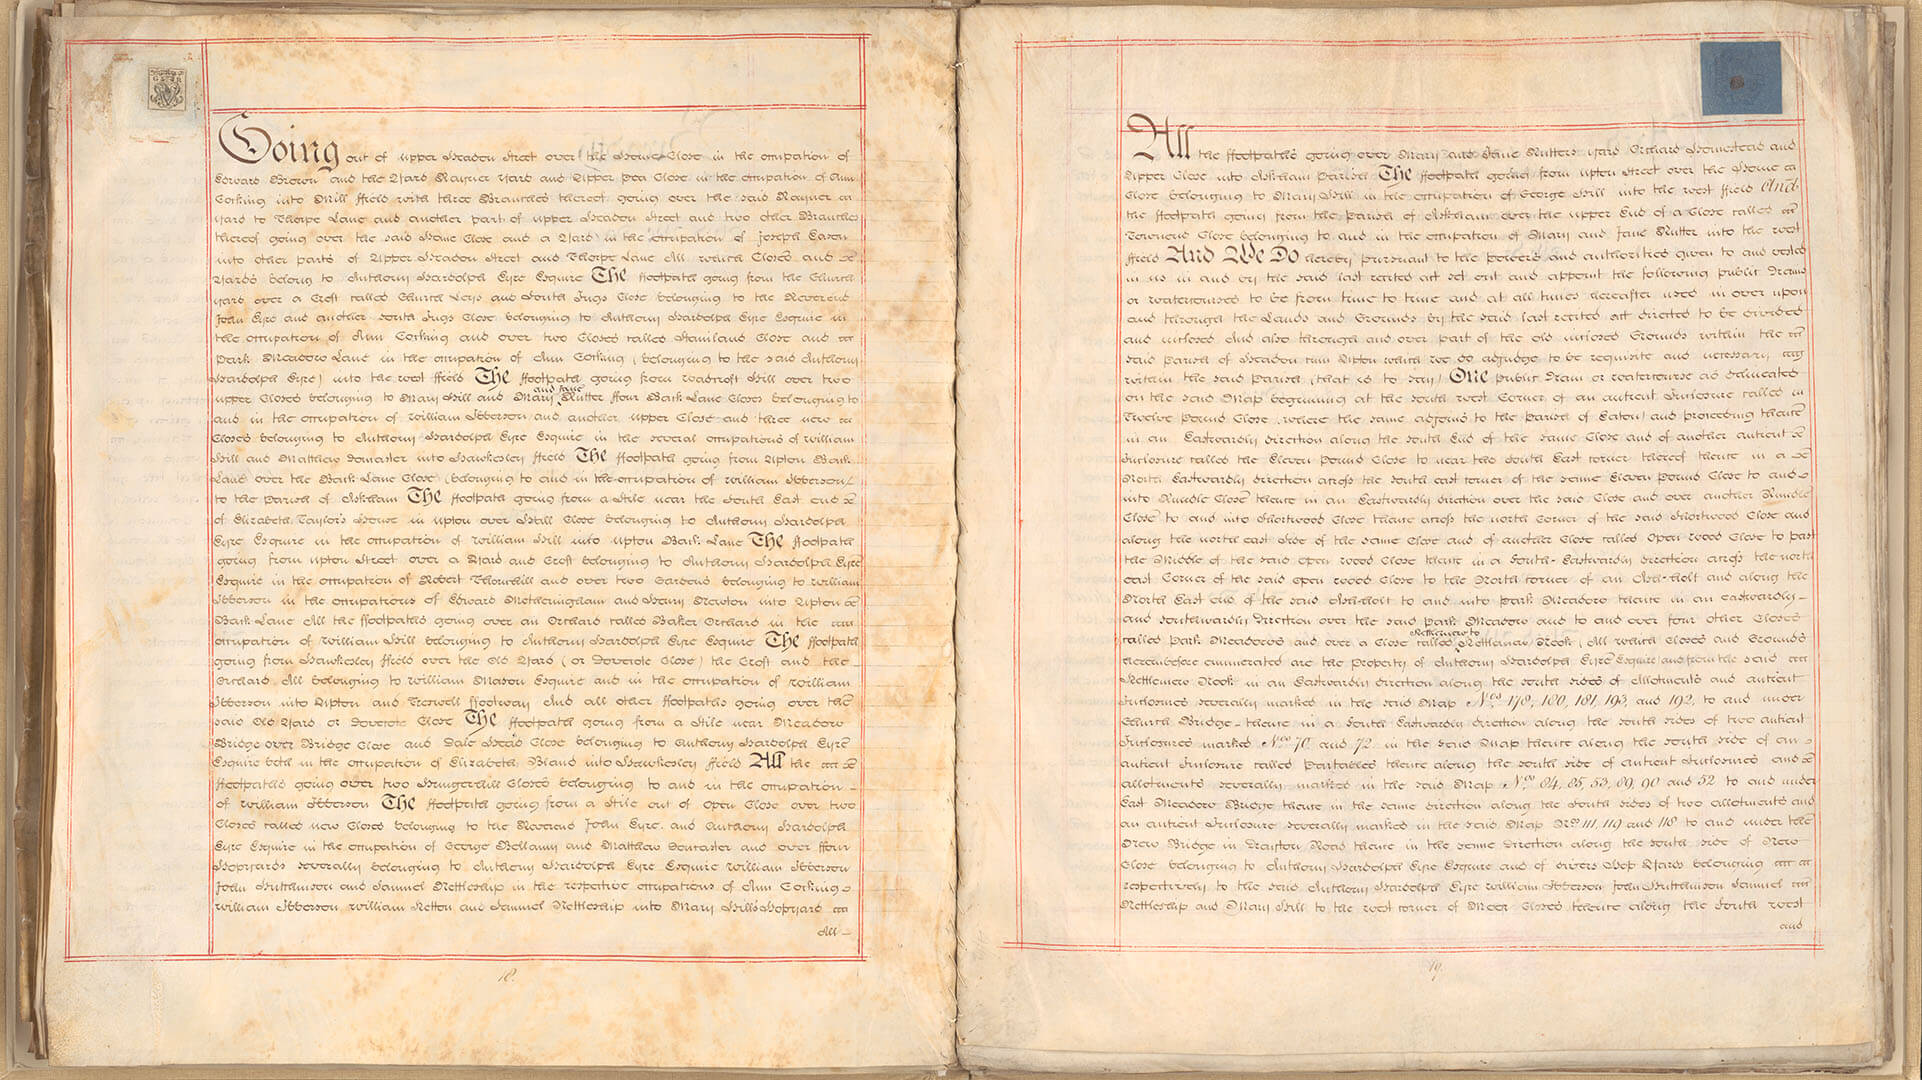 Going out of upper Headon Street over the Home Close in the occupation of
Edward Brown and the Yard Rayner Yard and Upper Pea Close in the occupation of Ann
Cocking into Mill ffield with three Branches thereof going over the said Rayner
Yard to Thorpe Lane and another part of upper Headon Street and two other Branches
thereof going over the said Home Close and a Yard in the occupation of Joseph Eaton
into other parts of Upper Headon Street and Thorpe Lane All which Closes and
Yards belong to Anthony Hardolph Eyre Esquire The ffootpath going from the Church
yard over a Croft called Church Leys and South Ings Close belonging to the Reverend
John Eyre and another South Ings Close belonging to Anthony Hardolph Eyre Esquire in
the occupation of Ann Cocking and over two Closes called Staniland Close and
Park Meadow Lane in the occupation of Ann Cocking (belonging to the said Anthony
Hardolph Eyre) into the west ffield The ffootpath going from Hill over two
upper Closes belonging to Mary Hill and Mary and Jane Nutter ffour Back Lane Closes belonging to
and in the occupation of William Ibberson and another upper Close and three new
Closes belonging to Anthony Hardolph Eyre Esquire in the several occupations of William
Hill and Matthew Doncaster into Hawksley ffield The ffootpath going from Upton Back
Lane over the Back Lane Close (belonging to and in the occupation of William Ibberson)
to the Parish of Askham The ffootpath going from a Stile near the South East end
of Elizabeth Taylor's House in upton over Hall Close belonging to Anthony Hardolph
Eyre Esquire in the occupation of William Hill into upton Back Lane The ffootpath
going from upton Street over a Yard and Croft belonging to Anthony Hardolph Eyre
Esquire in the occupation of Robert Thornhill and over two Gardens belonging to William
Ibberson in the occupations of Edward Motheringham and Henry Newton into Upton
Back Lane All the ffootpaths going over an Orchard called Baker Orchard in the
occupation of William Hill belonging to Anthony Hardolph Eyre Esquire The ffootpath
going from Hawksley ffield over the Old Yard (or Dovecote Close) the Croft and the
Orchard All belonging to William Mason Esquire and in the occupation of William
Ibberson into Upton and Treswell ffootway And all other ffootpaths going over the
said Old Yard or Dovecote Close The ffootpath going from a Stile near Meadow
Bridge over Bridge Close and Dale Head Close belonging to Anthony Hardolph Eyre
Esquire both in the occupation of Elizabeth Bland into Hawksley ffield All the
ffootpaths going over two Hungerhill Closes belonging to and in the occupation
of William Ibberson The ffootpath going from a Stile out of Open Close over two
Closes called new Closes belonging to the Reverend John Eyre and Anthony Hardolph
Eyre Esquire in the occupation of George Bellamy and Matthew Doncaster and over ffour
Hopyards severally belonging to Anthony Hardolph Eyre Esquire William Ibberson
John Hutchinson and Samuel Nettleship in the respective occupations of Ann Cocking
William Ibberson William and Samuel Nettleship into Mary Hill's Hopyard
All
18
All the ffootpaths going over Mary and Jane Nutters Yard Orchard Homestead and
Upper Close into Askham Parish The ffootpath going from upton Street over the Home
Close belonging to Mary Hill in the occupation of George Hill into the west ffield And
the ffootpath going from the Parish of Askham over the upper End of a Close called
Townend Close belonging to and in the occupation of Mary and Jane Nutter into the west
ffield And We Do hereby pursuant to the powers and authorities given to and vested
in us in and by the said last recited act set out and appoint the following public Drains
or watercourses to be from time to time and at all times hereafter used in over upon
and through the Lands and Grounds by the said last recited act directed to be divided
and inclosed And also through and over part of the old inclosed Grounds within the
said Parish of Headon cum Upton which we do adjudge to be requisite and necessary
within the said Parish (that is to say) One public Drain or watercourse as delineated
on the said Map beginning at the south west Corner of an antient Inclosure called
Twelve Pound Close (where the same adjoins to the Parish of Eaton) and proceeding thence
in an Eastwardly direction along the South End of the same Close and of another antient
Inclosure called the Eleven Pound Close to near the South East corner thereof thence in a
North Eastwardly direction across the south east corner of the same Eleven Pound Close to and
into Rundle Close thence in an Eastwardly direction over the said Close and over another Rundle
Close to and into Shortwood Close thence across the north Corner of the said Shortwood Close and
along the north east side of the same Close and of another Close called Open wood Close to past
the Middle of the said Open wood Close thence in a South Eastwardly direction across the north
east Corner of the said Open wood Close to the North corner of an Ash-holt and along the
North East end of the said Ash-holt to and into Park Meadow thence in an eastwardly
and southwardly direction over the said Park Meadow and to and over four other Closes
called Park Meadows and over a Close called Nettlemew Nook (All which Closes and Grounds
hereinbefore enumerated are the Property of Anthony Hardolph Eyre Esquire) and from the said
Nettlemew Nook in an Eastwardly direction along the South sides of Allotments and antient
Inclosures severally marked in the said Map Nos. 178, 180, 181, 193, and 192, to and under
Church Bridge thence in a South Eastwardly direction along the south sides of two antient
Inclosures marked Nos. 70 and 72 in the said Map thence along the South side of an
antient Inclosure called Partables thence along the south side of antient Inclosures and
allotments severally marked in the said Map Nos. 84, 85, 53, 89, 90 and 52 to and under
East Meadow Bridge thence in the same direction along the South sides of two allotments and
an antient Inclosure severally marked in the said Map Nos 111, 119 and 118 to and under the
New Bridge in Drayton Road thence in the same direction along the South side of New
Close belonging to Anthony Hardolph Eyre Esquire and of divers Hop Yards belonging
respectively to the said Anthony Hardolph Eyre William Ibberson John Hutchinson Samuel
Nettleship and Mary Hill to the west corner of Moor Closes thence along the South west
and
19